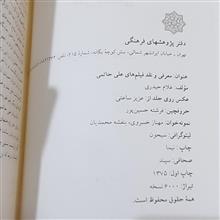 دفتر پژوهشهای فرهنگی
تهران ـ خیابان ایرانشهر شمالی، نبش کوچهٔ یگانه، شمارهٔ ۲۱۵، تلفن
عنوان: معرفی و نقد فیلم‌های علی حاتمی
مؤلف: غلام حیدری
عکس روی جلد از: عزیز ساعتی
حروفچین: فرشته حسین‌پور
نمونه‌خوان: مهناز خسروی، بنفشه محمدیان
لیتوگرافی: سیحون
چاپ: نیما
صحافی: سپند
چاپ اول: ۱۳۷۵
تیراژ: ۶۰۰۰ نسخه
همهٔ حقوق محفوظ است.